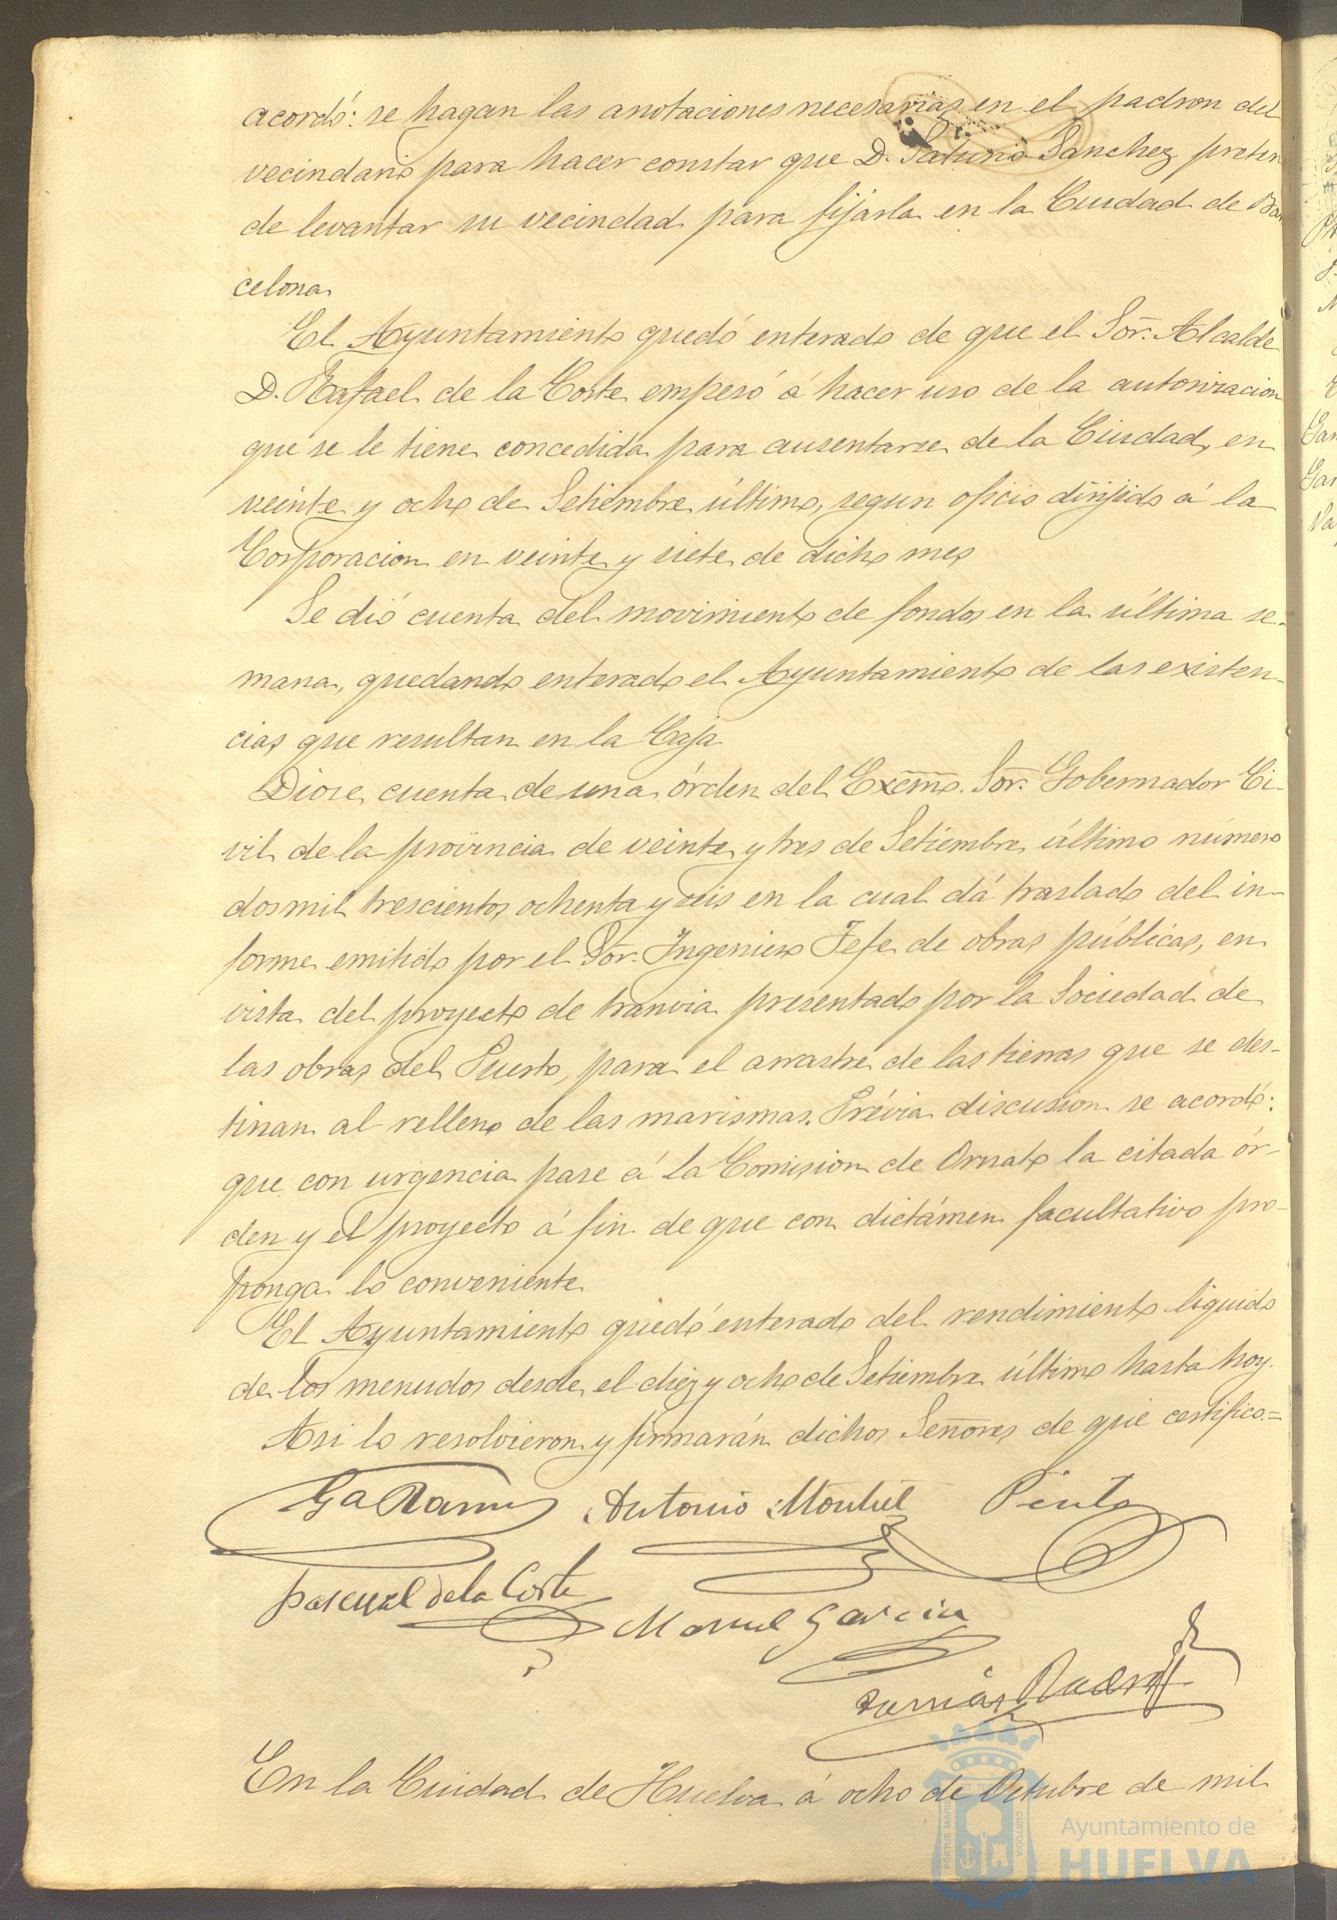 acordó: se hagan las anotaciones necesarias en el padron del
vecindario para hacer constar que D. Saturio Sanchez preten
de levantar su vecindad para fijarla en la Ciudad de Bar
celona.
El Ayuntamiento quedó enterado de que el Sor. Alcalde
D. Rafael de la Corte empesó á hacer uso de la autorizacion
que se le tiene concedida para ausentarse de la Ciudad, en
veinte y ocho de Setiembre último, segun oficio dirijido á la
Corporacion en veinte y siete de dicho mes
Se dió cuenta del movimiento de fondos en la última se-
mana, quedando enterado el Ayuntamiento de las existen-
cias que resultan en la Caja
Diose cuenta de una órden del Excmo. Sor. Gobernador Ci-
vil de la provincia de veinte y tres de Setiembre último número
dos mil trescientos ochenta y seis en la cual dá traslado del in-
forme emitido por el Sor. Ingeniero Jefe de obras públicas, en
vista del proyecto de tranvia presentado por la Sociedad de
las obras del Puerto, para el arrastre de las tierras que se des-
tinan al relleno de las marismas. Prévia discusion se acordó:
que con urgencia pase á la Comision de Ornato la citada ór-
den y el proyecto á fin de que con dictámen facultativo pro-
ponga lo conveniente
El Ayuntamiento quedó enterado del rendimiento liquido
de los menudos desde el diez y ocho de Setiembre último hasta hoy.
Asi lo resolvieron y firmarán dichos Señores de que certifico.=
Ga Ramos Antonio Montiel Pinto
Pascual de la Corte
Manuel Garcia
Tomás
En la Ciudad de Huelva á ocho de Octubre de mil
Ayuntamiento de
HUELVA